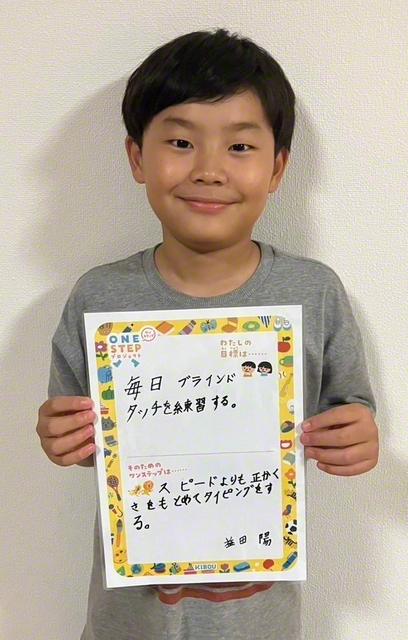 ONE
STEP
プロジェクト
わたしの
目標は……
毎日 ブラインド
タッチを練習する。
そのための
ワンステップは……
スピードよりも正かく
さをもとめてタイピングをす
る。
益田 陽
KIBOU